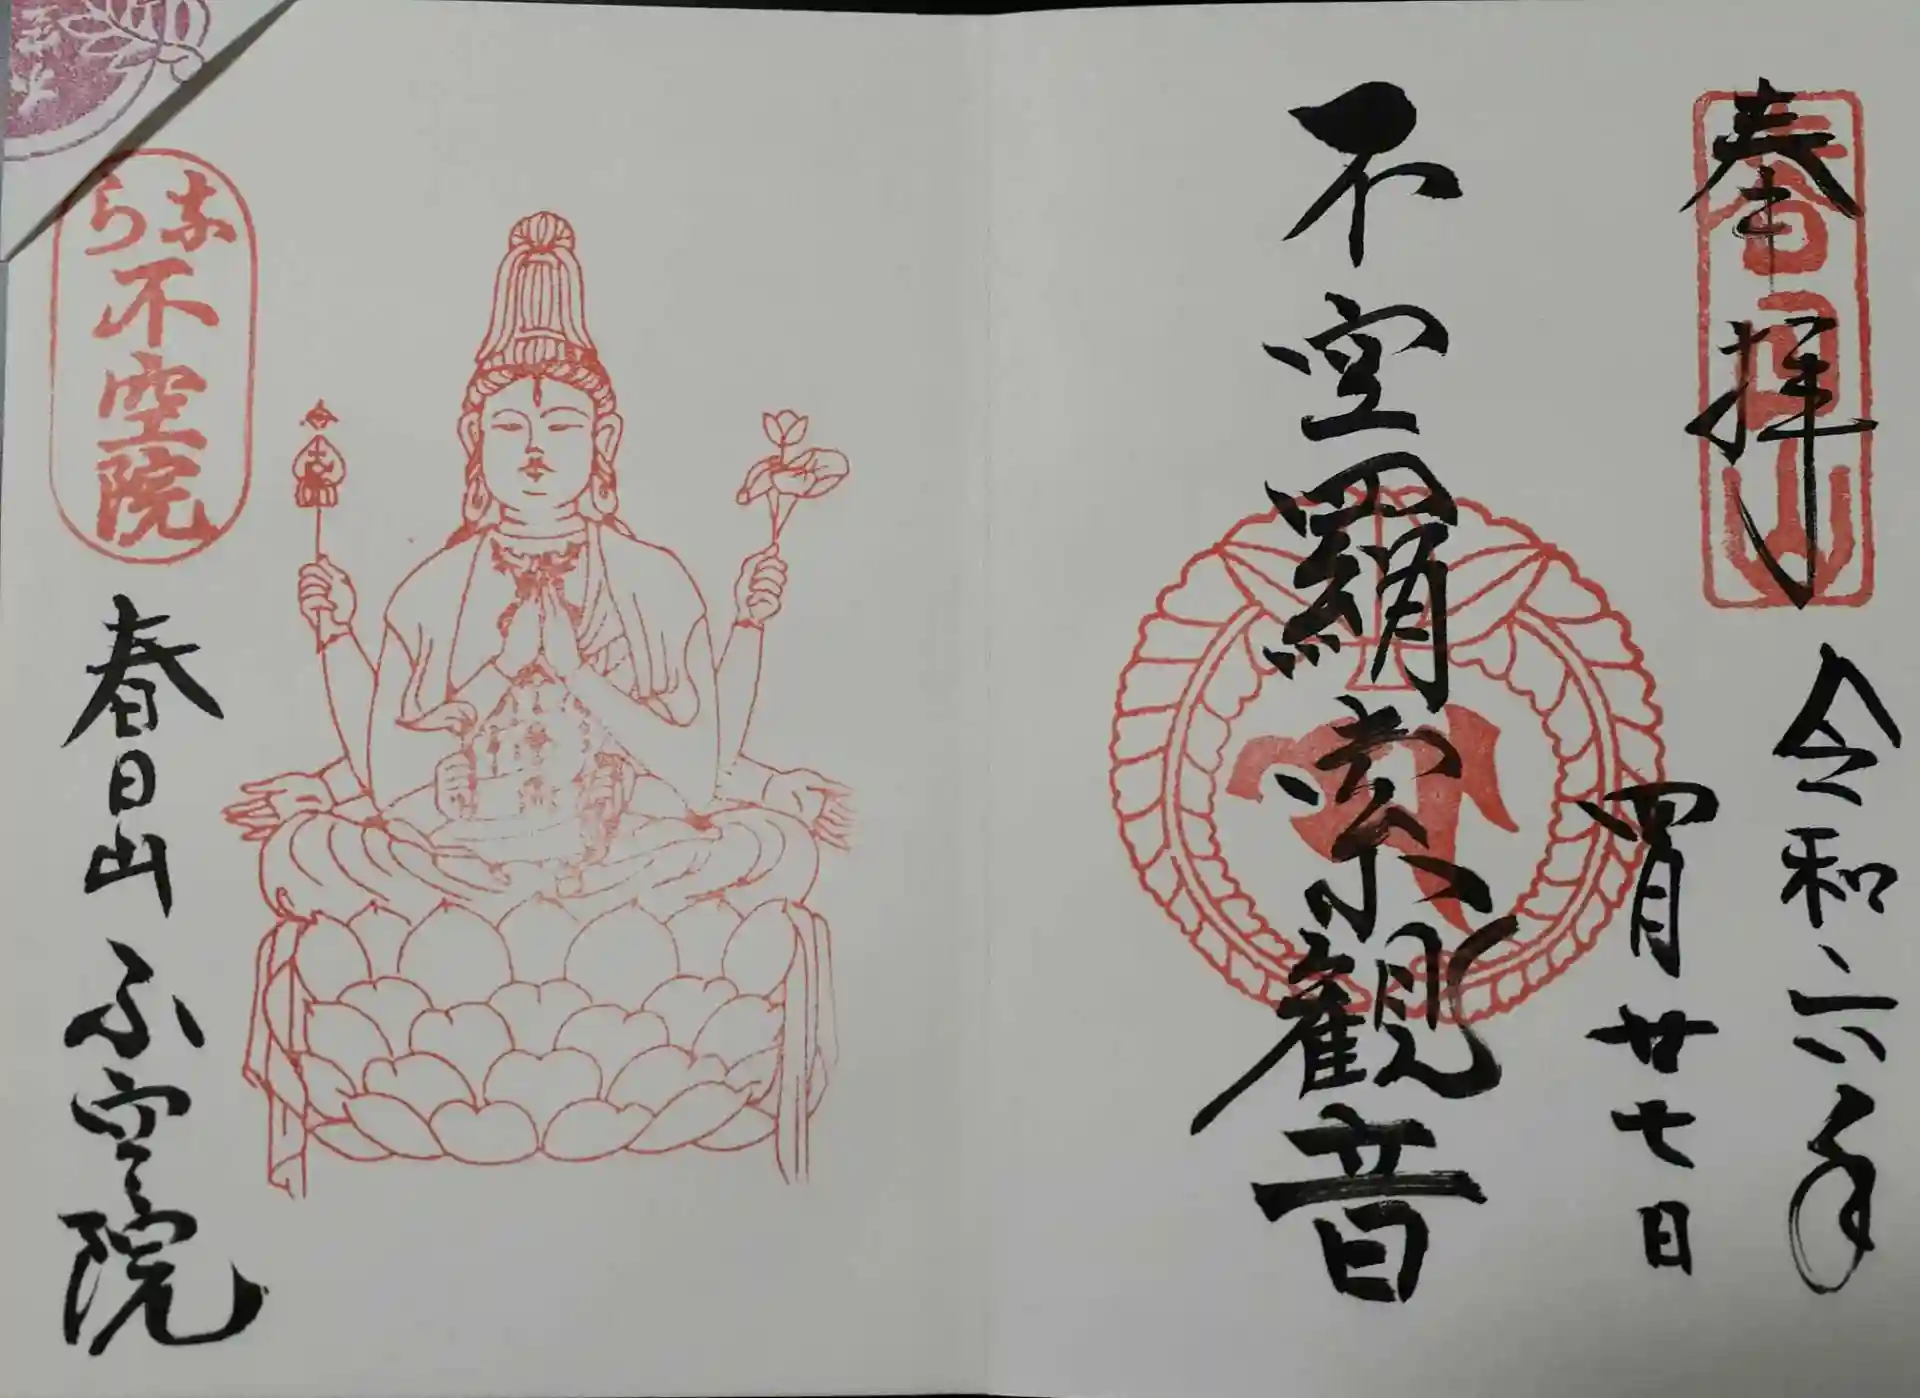 奉拝
春日山
令和六年
四月廿七日
不空羂索観音
なら
不空院
春日山不空院